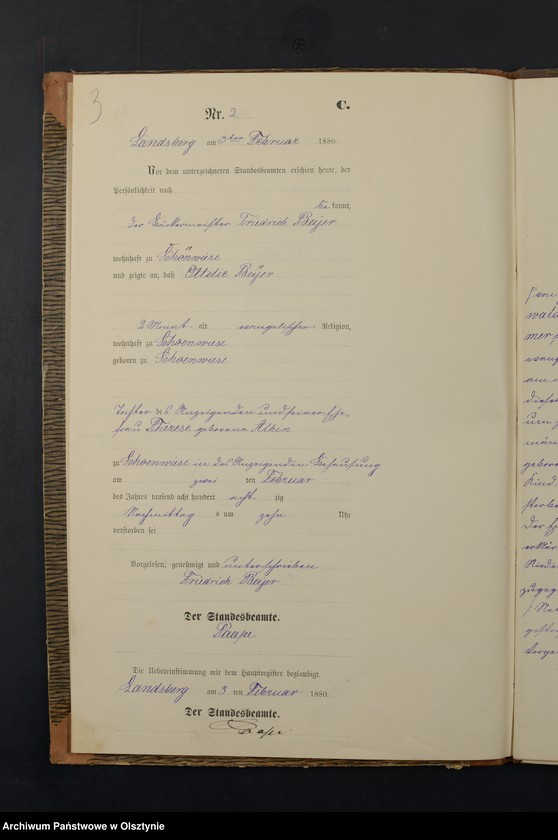 3
C.
Nr. 2
Landsberg am 3ten Februar 1880.
Vor dem unterzeichneten Standesbeamten erschien heute, der
Persönlichkeit nach
be kannt,
der Friedrich Beyer
wohnhaft zu Schönwiese
und zeigte an, daß Ottilie Beyer
2 Monat alt evangelischer Religion,
wohnhaft zu Schoenwiese
geboren zu Schoenwiese
Tochter des Anzeigenden und seiner Ehe-
frau Therese geborene Albin
zu Schoenwiese in des Anzeigenden Behausung
am zwei ten Februar
des Jahres tausend acht hundert acht zig
Nachmittag s um zehn Uhr
verstorben sei
Vorgelesen, genehmigt und unterschrieben
Friedrich Beyer
Der Standesbeamte.
Die Uebereinstimmung mit dem Hauptregister beglaubigt.
Landsberg am 3 ten Februar 1880.
Der Standesbeamte.
Archiwum Państwowe w Olsztynie